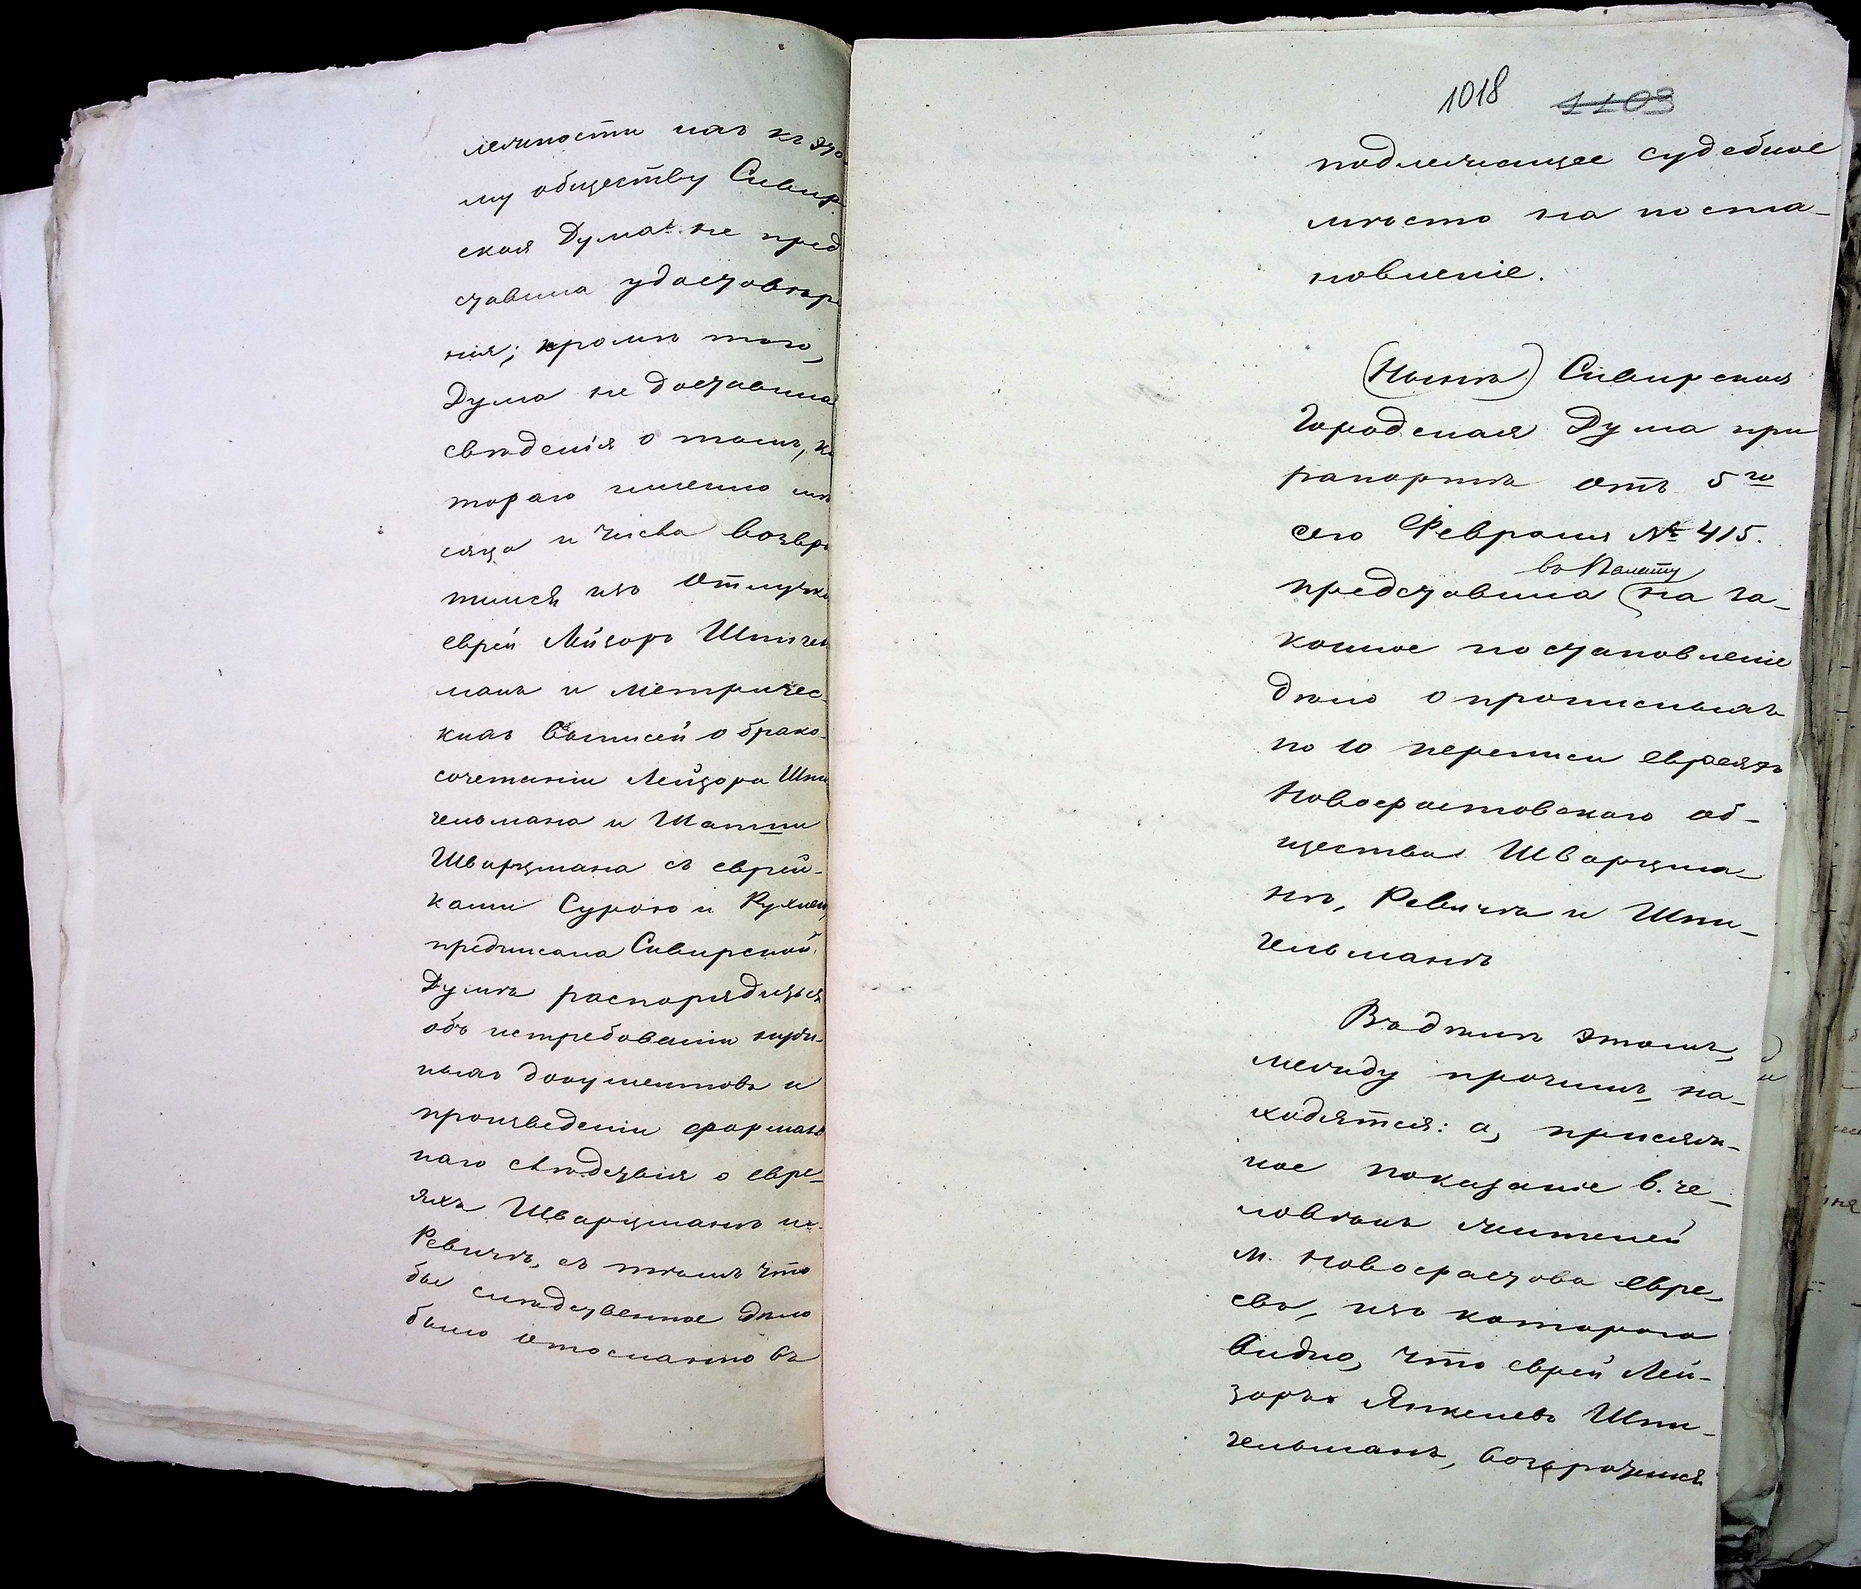 лежности ихъ къ это-
му обществу Сквир
ская Дума не пред
ставила удостовѣре
нія; кромѣ того,
Дума не доставила
свѣденія о томъ, ко
тораго именно мѣ
сяца и числа возвра
тился изъ отлучки
еврей Лейзоръ Шпигель
манъ и метричес-
кихъ выписей о брако-
сочетаніи Лейзора Шпи
гельмана и
Шварцмана съ еврей-
ками Сурою и Рухлею,
предписала Сквирской
Думѣ распорядиться
объ истребованіи нужд-
ныхъ документовъ и
произведеніи формаль
наго слѣдствія о евре-
яхъ Шварцманѣ и
Ревичѣ, съ тѣмъ что
бы слѣдственное дѣло
было отослано въ
1018 1103
подлежащее судебное
мѣсто на поста-
новленіе.
(Нынѣ) Сквирская
Городская Дума при
рапортѣ отъ 5го
сего Февраля № 415.
въ Палату
представила (на за-
конное постановленіе
дѣло о прописныхъ
по 10 переписи евреяхъ
Новофастовскаго об-
щества Шварцма-
нѣ, Ревичѣ и Шпи-
гельманѣ
Въ дѣлѣ этомъ,
между прочимъ, на-
ходятся: а, присяж-
ное показаніе 6. че-
ловѣкъ жителей
м. Новофастова евре-
евъ, изъ котораго
видно, что еврей Лей-
зоръ Янкелевъ Шпи-
гельманъ, возвратился